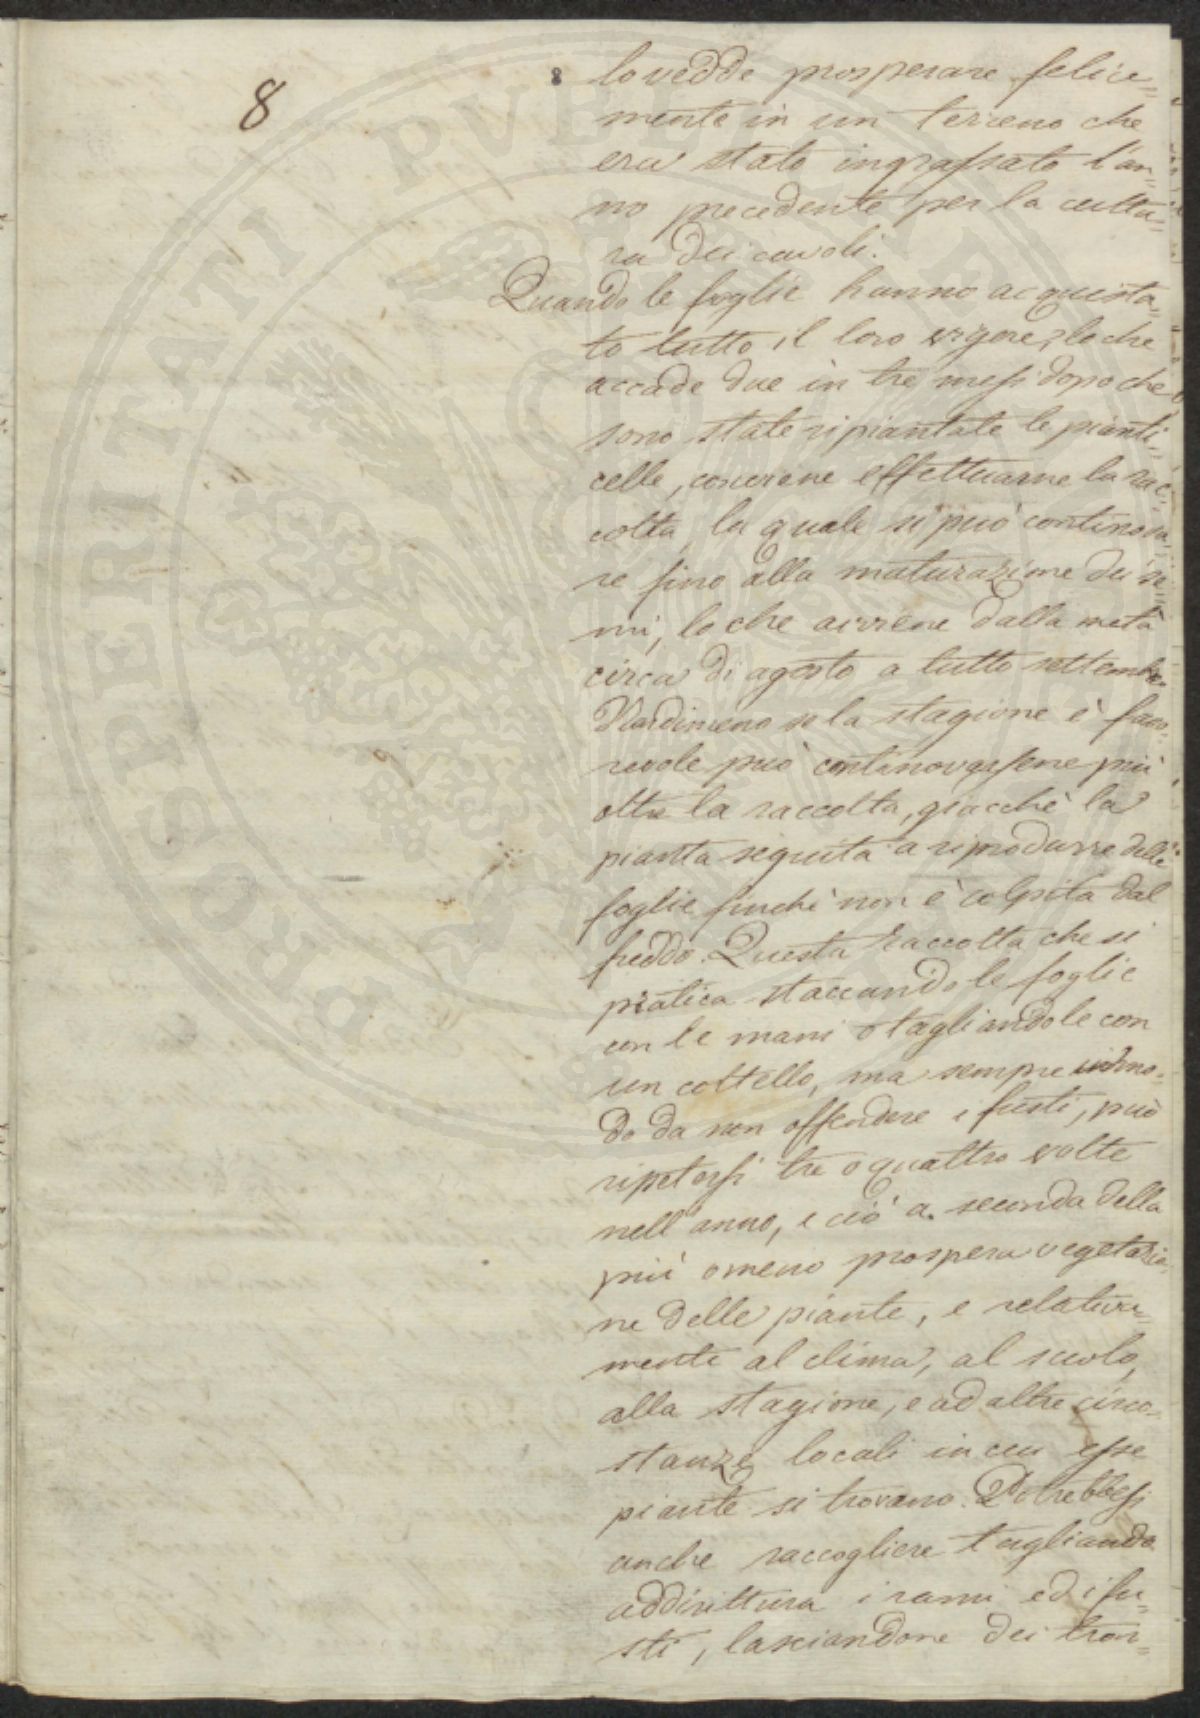 8
8
lo vedde prosperare felice=
mente in un terreno che
era stato ingrassato l'an=
no precedente per la cultu=
ra dei cavoli.
Quando le foglie hanno acquista=
to tutto il loro vigore, loche
accade due in tre mesi dopo che
sono state ripiantate le pianti=
celle, conviene effettuarne la rac=
colta, la quale si può continova=
re fino alla maturazione dei se=
mi, lo che avviene dalla metà
circa di agosto a tutto settembre.
Nondimeno se la stagione è favo=
revole può continovarsene più
oltre la raccolta, giacchè la
pianta seguita a riprodurre delle
foglie finchè non è colpita dal
freddo. Questa raccolta che si
pratica staccando le foglie
con le mani o tagliandole con
un coltello, ma sempre in mo=
do da non offendere i fusti, può
ripetersi tre o quattro volte
nell'anno, e ciò a seconda della
più o meno prospera vegetazio=
ne delle piante, e relativa=
mente al clima, al suolo,
alla stagione, e ad altre circo=
stanze locali in cui esse
piante si trovano. Potrebbesi
anche raccogliere tagliando
addirittura i rami ed i fu=
sti, lasciandone dei tron=
PROSPERITATI